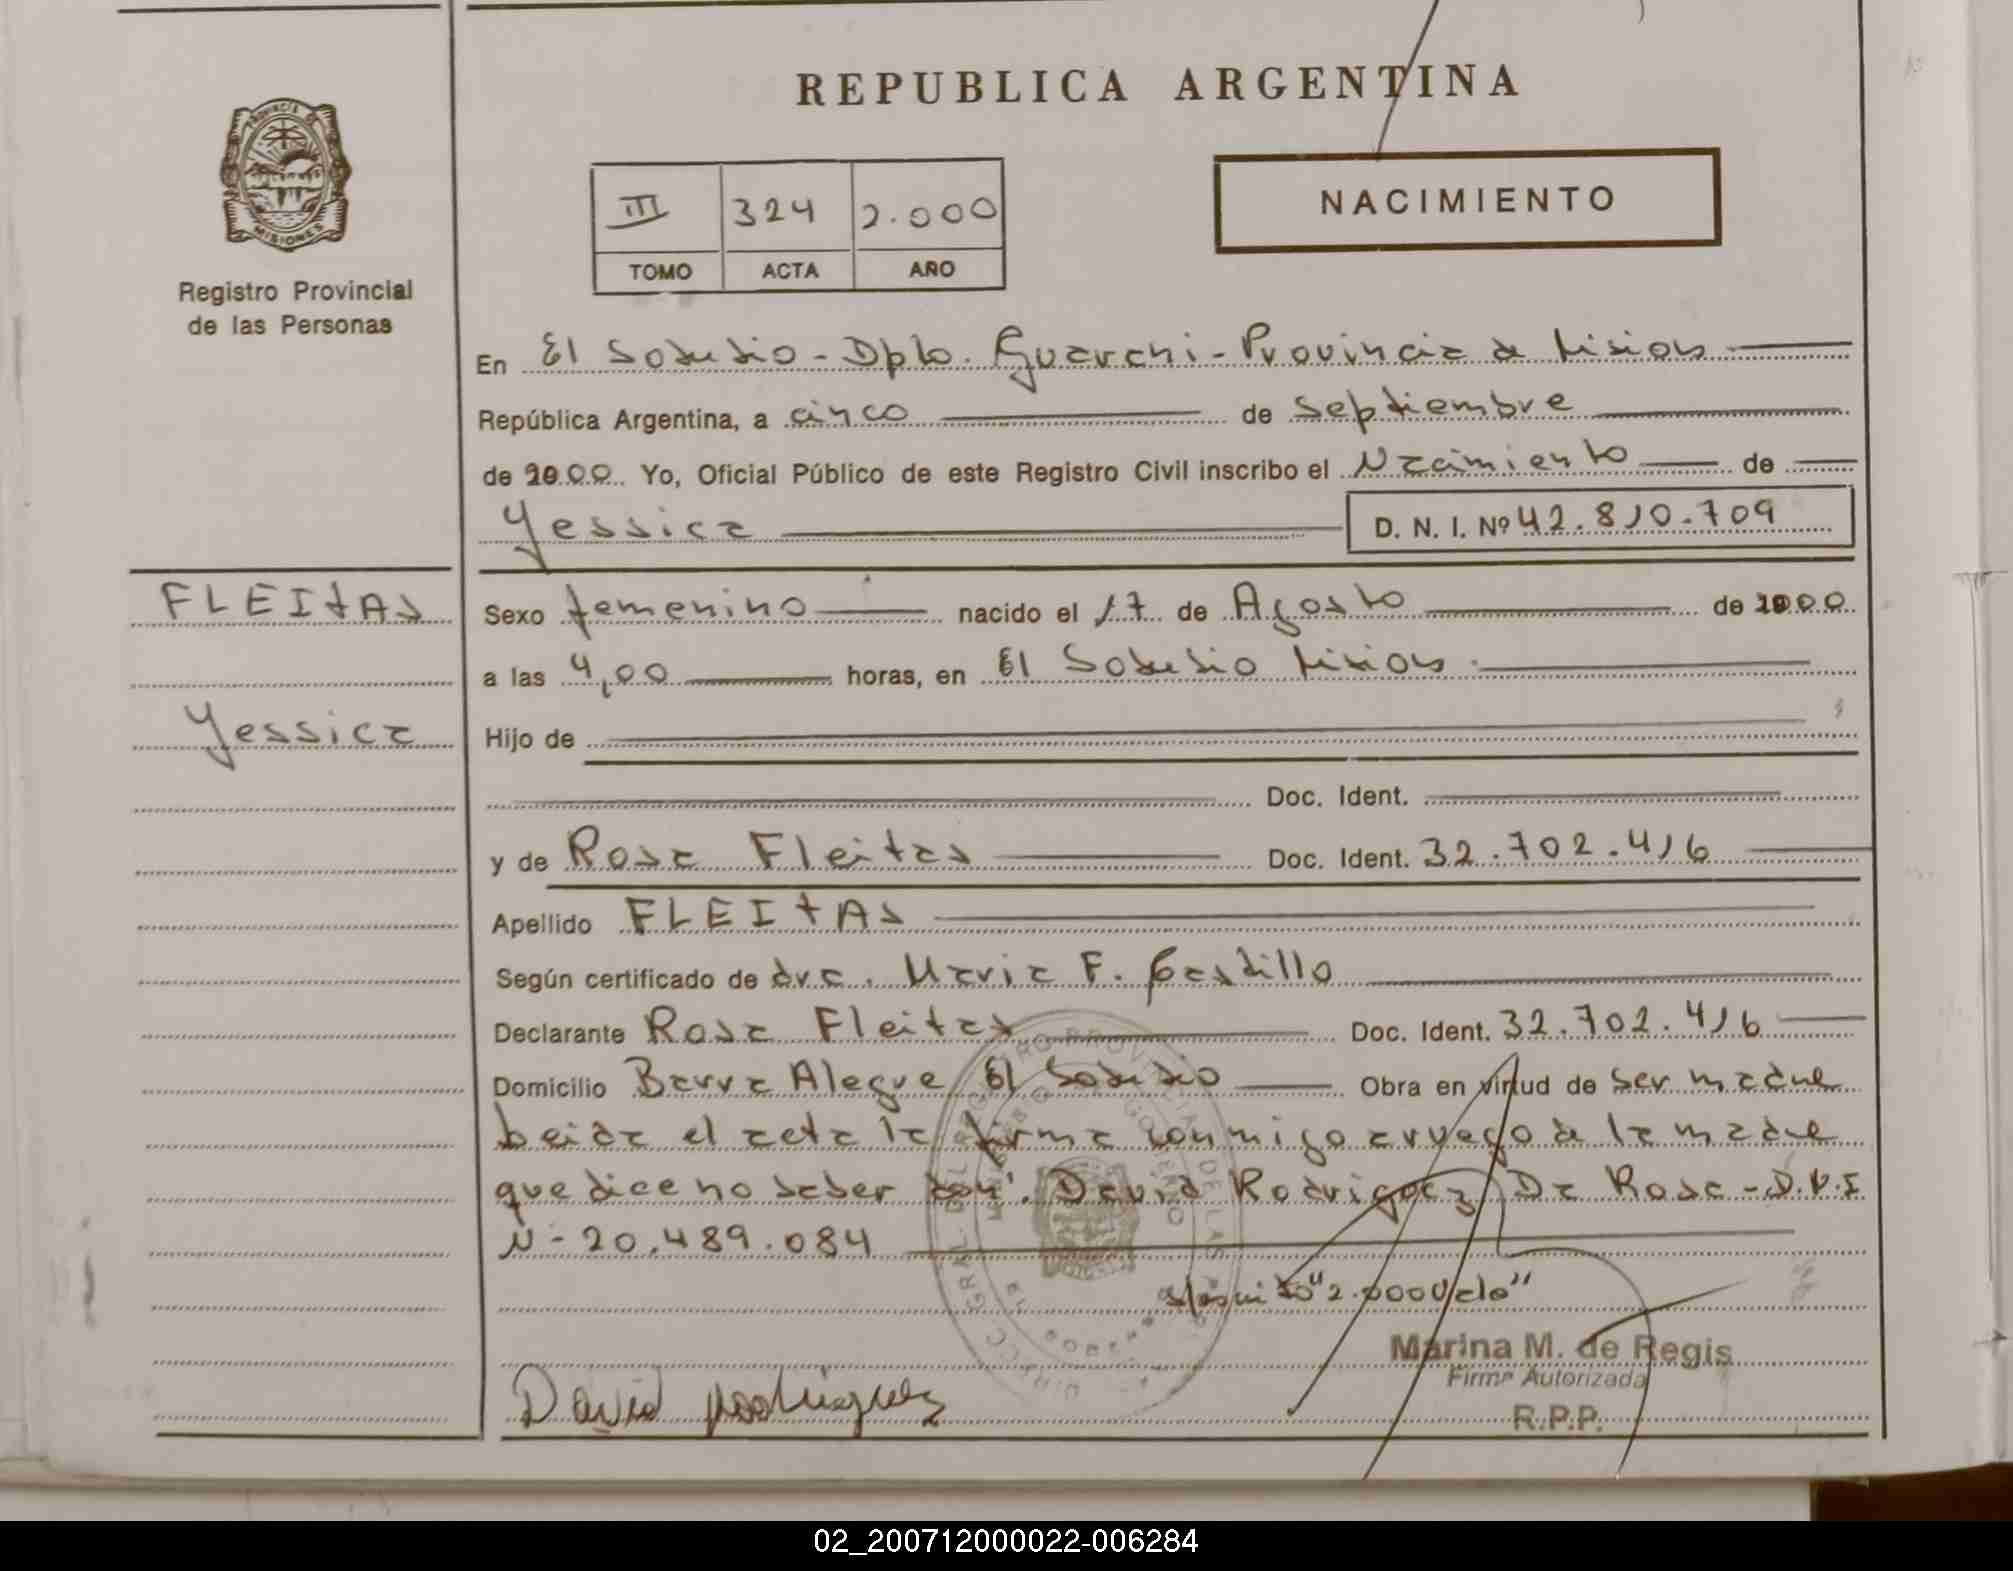 REPUBLICA ARGENTINA
PROVINCIA DE
MISIONES
Registro Provincial
de las Personas
III 324 2.000
TOMO ACTA AÑO
NACIMIENTO
En El Soberbio - Dpto. Guarani - Provincia de Misiones
República Argentina, a cinco de Septiembre
de 2000 Yo, Oficial Público de este Registro Civil inscribo el Nacimiento de
Yessica D. N. I. Nº 42.810.709
FLEITAS
Yessica
Sexo femenino nacido el 17 de Agosto de 2000
a las 4,00 horas, en El Soberbio Misiones.
Hijo de
Doc. Ident.
y de Rosa Fleitas Doc. Ident. 32.702.416
Apellido FLEITAS
Según certificado de dra. Maria F. Castillo
Declarante Rosa Fleitas Doc. Ident. 32.702.416
Domicilio Barra Alegre El Soberbio Obra en virtud de ser madre
Leida el acta la firma conmigo a ruego de la madre
que dice no saber don. David Rodriguez Da Rosa - D.N.I
N- 20.489.084
"2.000 Vale"
Marina M. de Regis
Firma Autorizada
R.P.P.
David Rodriguez
02_200712000022-006284